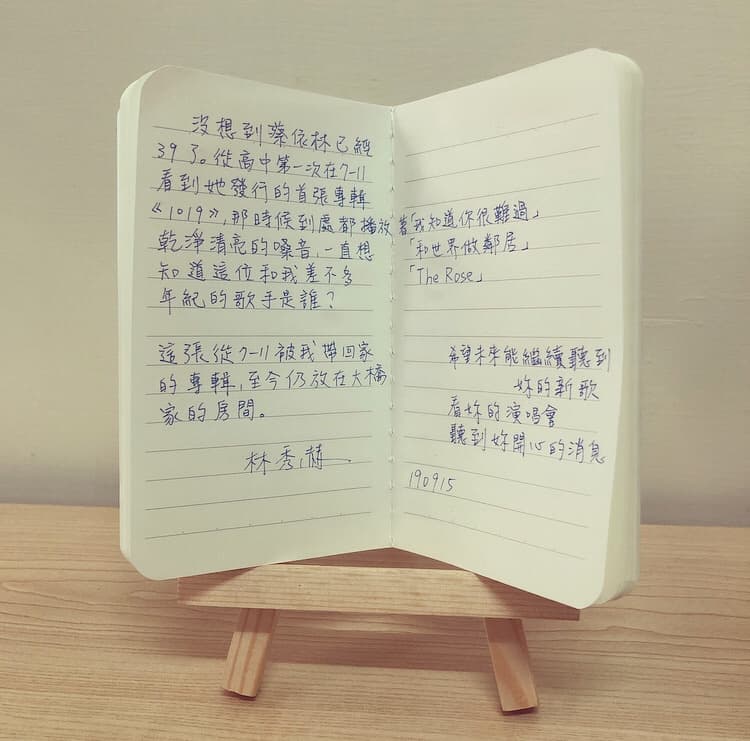 沒想到蔡依林已經
39了。從高中第一次在7-11
看到她發行的首張專輯
《1019》,那時候到處都播放著「我知道你很難過」
乾淨清亮的嗓音,一直想
知道這位和我差不多
年紀的歌手是誰?
這張從7-11被我帶回家
的專輯,至今仍放在大橋
家的房間。
林秀赫
「和世界做鄰居」
「The Rose」
希望未來能繼續聽到
妳的新歌
看妳的演唱會
聽到妳開心的消息
190915